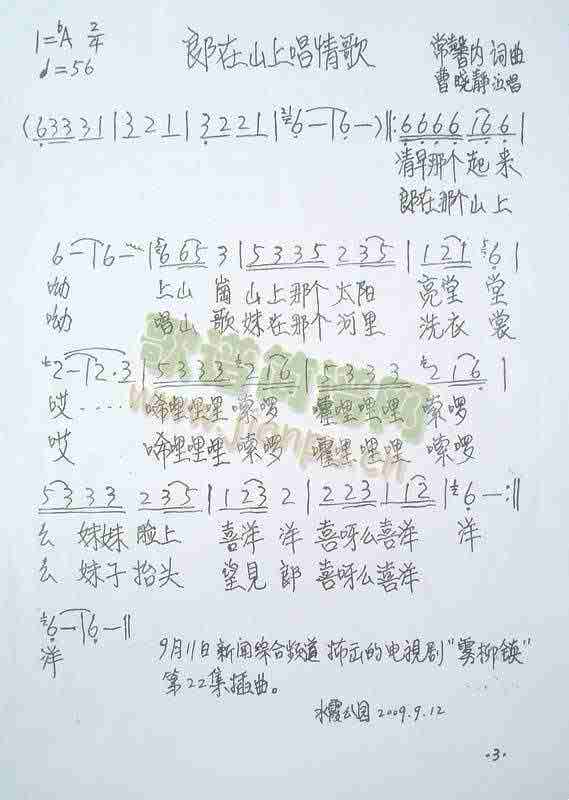 1=♭A 2/4
♩=56
郎在山上唱情歌
常馨内 词曲
曹晓静 演唱
(6 3 3 3 1 | 3 2 1 | 3 2 2 1 | 6 — | 6 — ) ‖: 6 6 6 6 1 6 6 |
清早那个起来
郎在那个山上
6 — | 6 — | 6 6 5 3 | 5 3 3 5 2 3 5 | 1 2 1 6 |
呦 上山 崗 山上那个 太阳 亮堂 堂
呦 唱山 歌 妹在那个 河里 洗衣 裳
2 — | 2 · 3 | 5 3 3 3 2 1 6 | 5 3 3 3 2 1 6 |
哎 ···· 唏哩哩哩 嗦啰 囉哩哩哩 嗦啰
哎 唏哩哩哩 嗦啰 囉哩哩哩 嗦啰
5 3 3 3 2 3 5 | 1 2 3 2 | 2 2 3 1 1 2 | 6 — :‖
么 妹妹 脸上 喜洋 洋 喜呀么喜洋 洋
么 妹子 抬头 望見 郎 喜呀么喜洋
6 — | 6 — ‖
洋
9月11日新闻综合频道 播出的电視剧"雾柳镇"
第22集插曲。
水霞公园 2009.9.12
·3·
歌谱简谱网
www.jianpu.cn